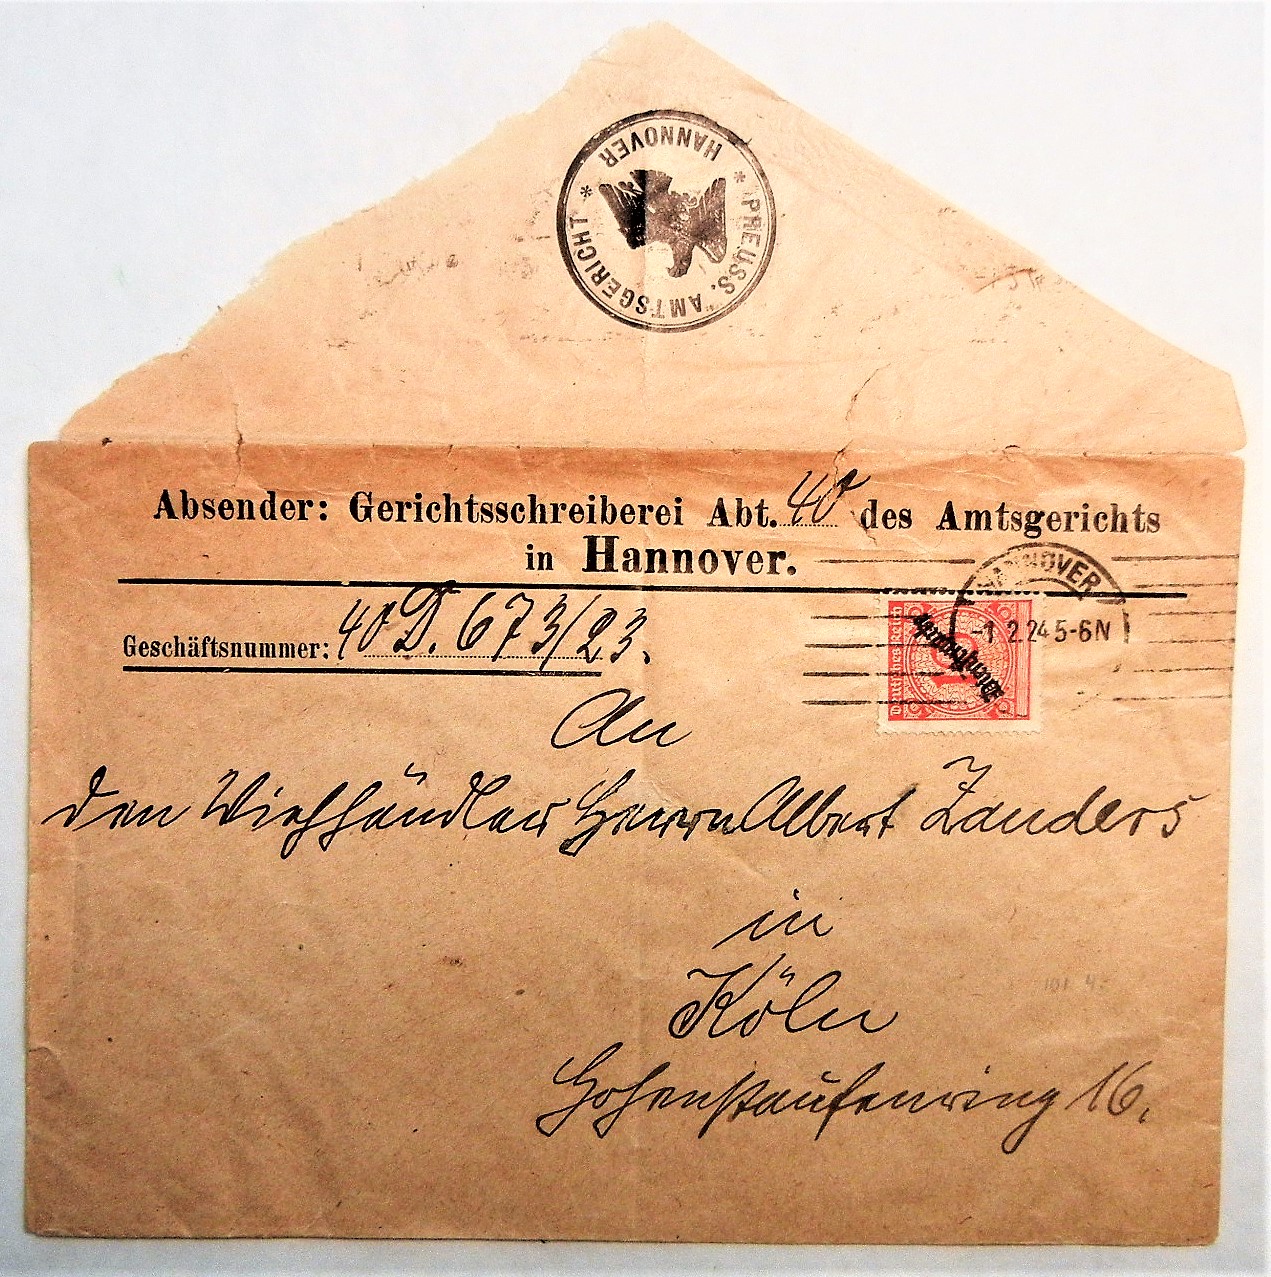 * PREUSS. AMTSGERICHT * HANNOVER
Absender: Gerichtsschreiberei Abt. 40 des Amtsgerichts
in Hannover.
HANNOVER
-1.2.24 5-6N
Geschäftsnummer: 40 D. 673/23.
Deutsches Reich
10
Dienstmarke
An
den Viehhändler Herrn Albert Zanders
in
Köln
Hohenstaufenring 16.